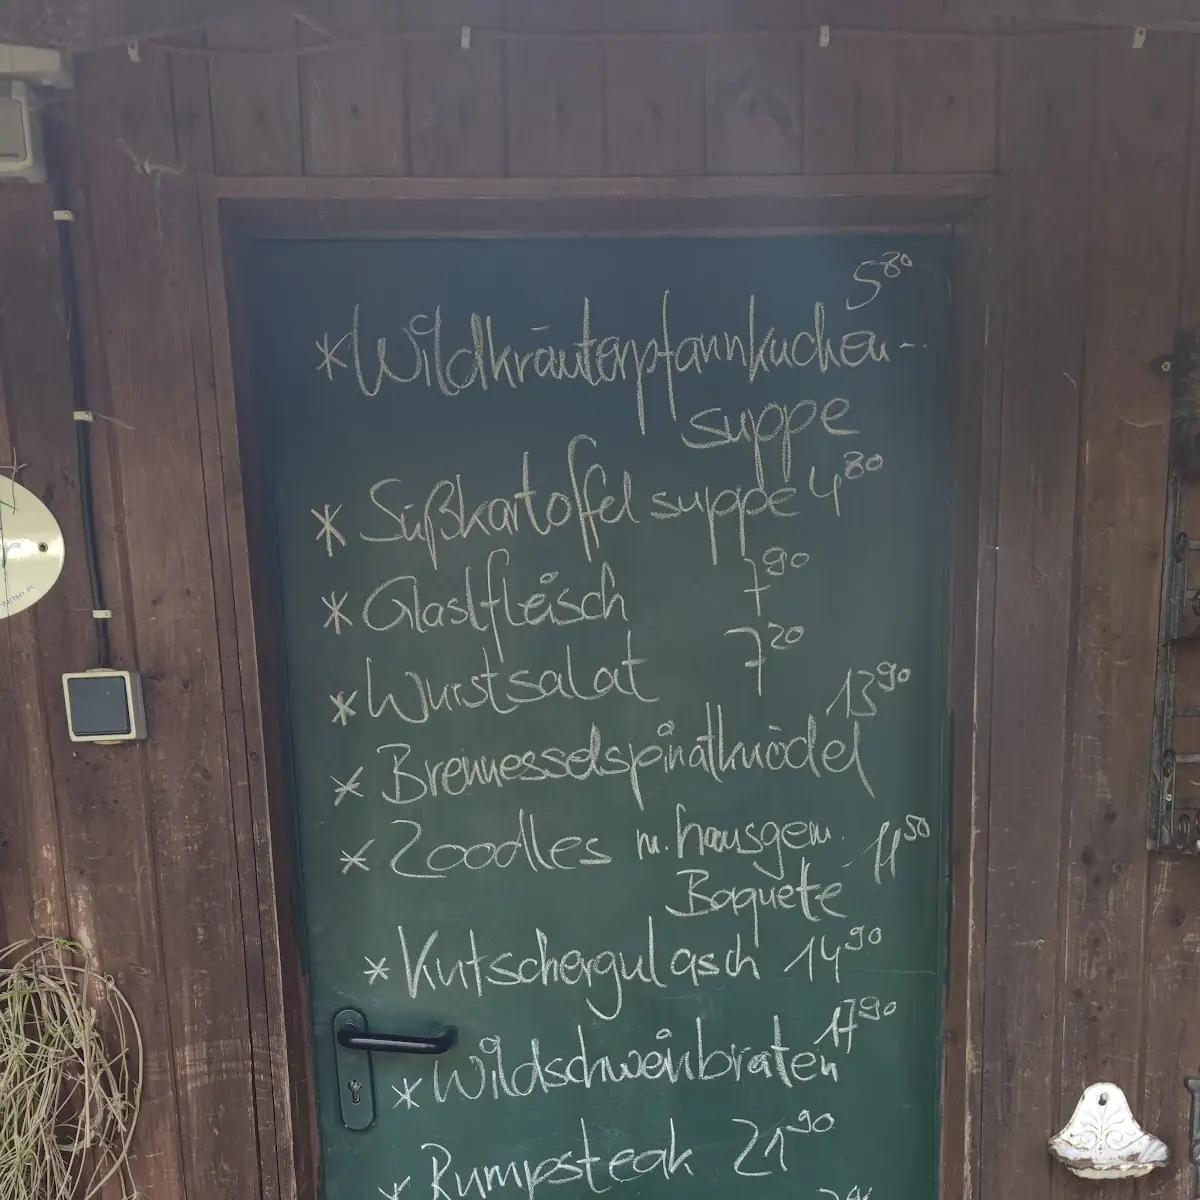 5 80
* Wildkräuterpfannkuchen-
suppe
* Süßkartoffelsuppe 4 80
* Glasfleisch 7 90
* Wurstsalat 7 20
* Brennesselspinatknödel 13 90
* Zoodles m. hausgem. 11 50
Baquete
* Kutschergulasch 14 90
* Wildschweinbraten 17 90
* Rumpsteak 21 90